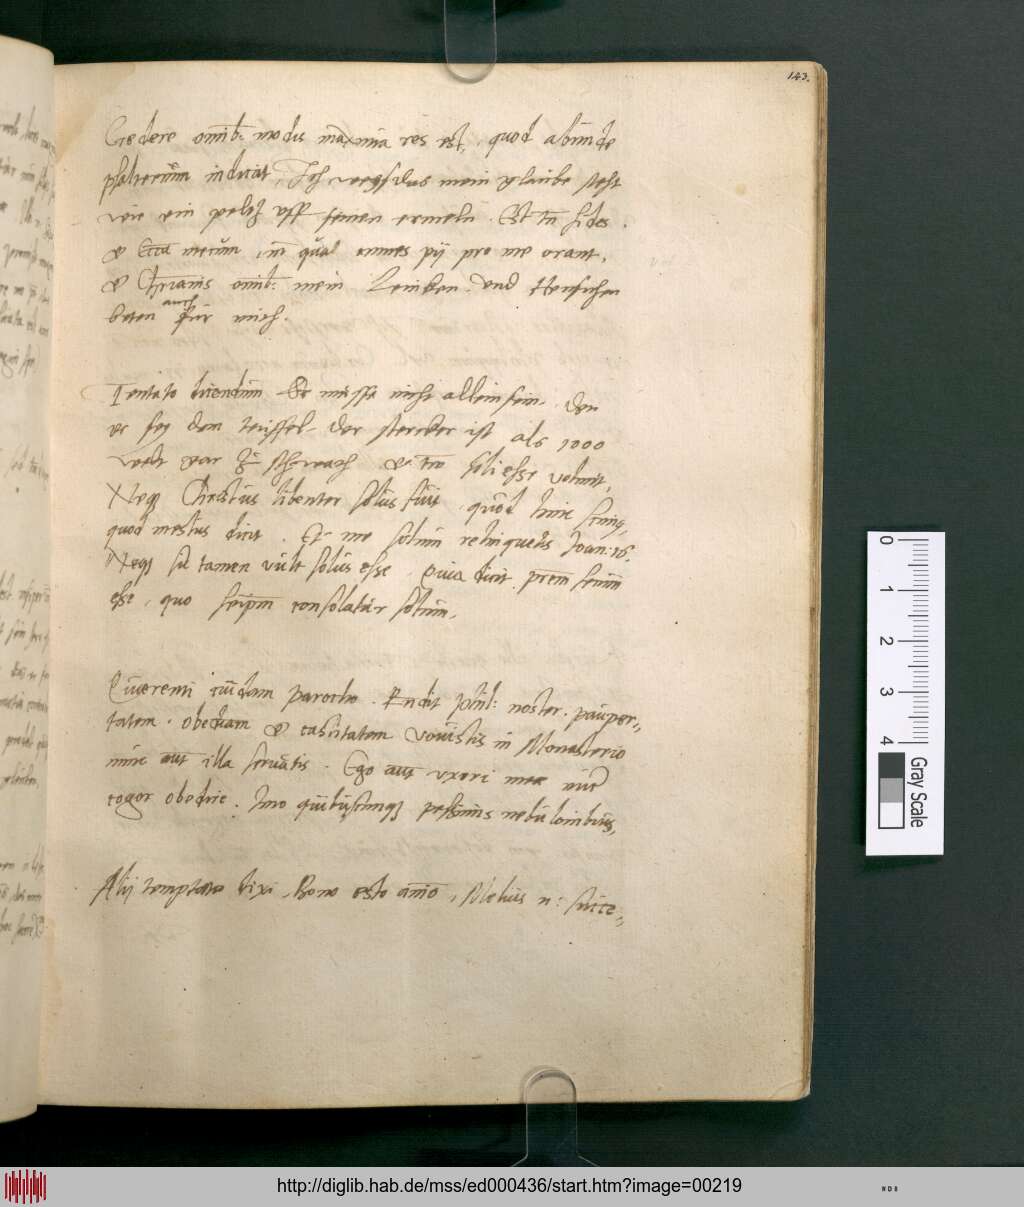 143.
Credere omib: modis maxima res est, quod abunde
psalterium indicat, Ich mein glaube steht
wie ein peltz uff seinen ermeln. Est tn fides.
& Ecca mecum, in qua omnes pij pro me orant,
& Chrianis omib: mein Lenichen und Hensichen
beten auch für mich.
Tentato dicendum Er musse nicht allein sein. Den
er sey dem teuffel. der stercker ist als 1000
welt war zu schwach & tn soli esse volunt,
Neq Christus libenter solus fuit, quod hinc
quod mestus dicit. Et me solum relinquetis Joan: 16.
Neq si tamen vult solus esse. Quia dicit, prem secum
esse, quo seipm consolatur solum.
Querenti cuidam parocho. Rndit noster. pauper-
tatem. obediam & castitatem vovistis in Monasterio
nunc aut illa servatis. Ego aut uxori mee
cogor obedire. Imo quibuscunq pessimis nebulonibus,
Alij temptato dixi, Bono esto animo, Melius n:
0
1
2
3
4
Gray Scale
http://diglib.hab.de/mss/ed000436/start.htm?image=00219